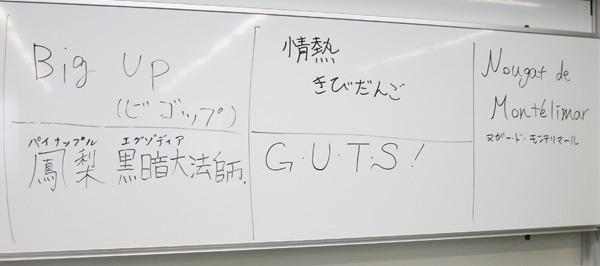 Big up
(ビゴップ)
パイナップル エグゾディア
鳳梨 黒暗大法師.
情熱
きびだんご
G・U・T・S!
Nougat de
Montélimar
ヌガー・ド・モンテリマール